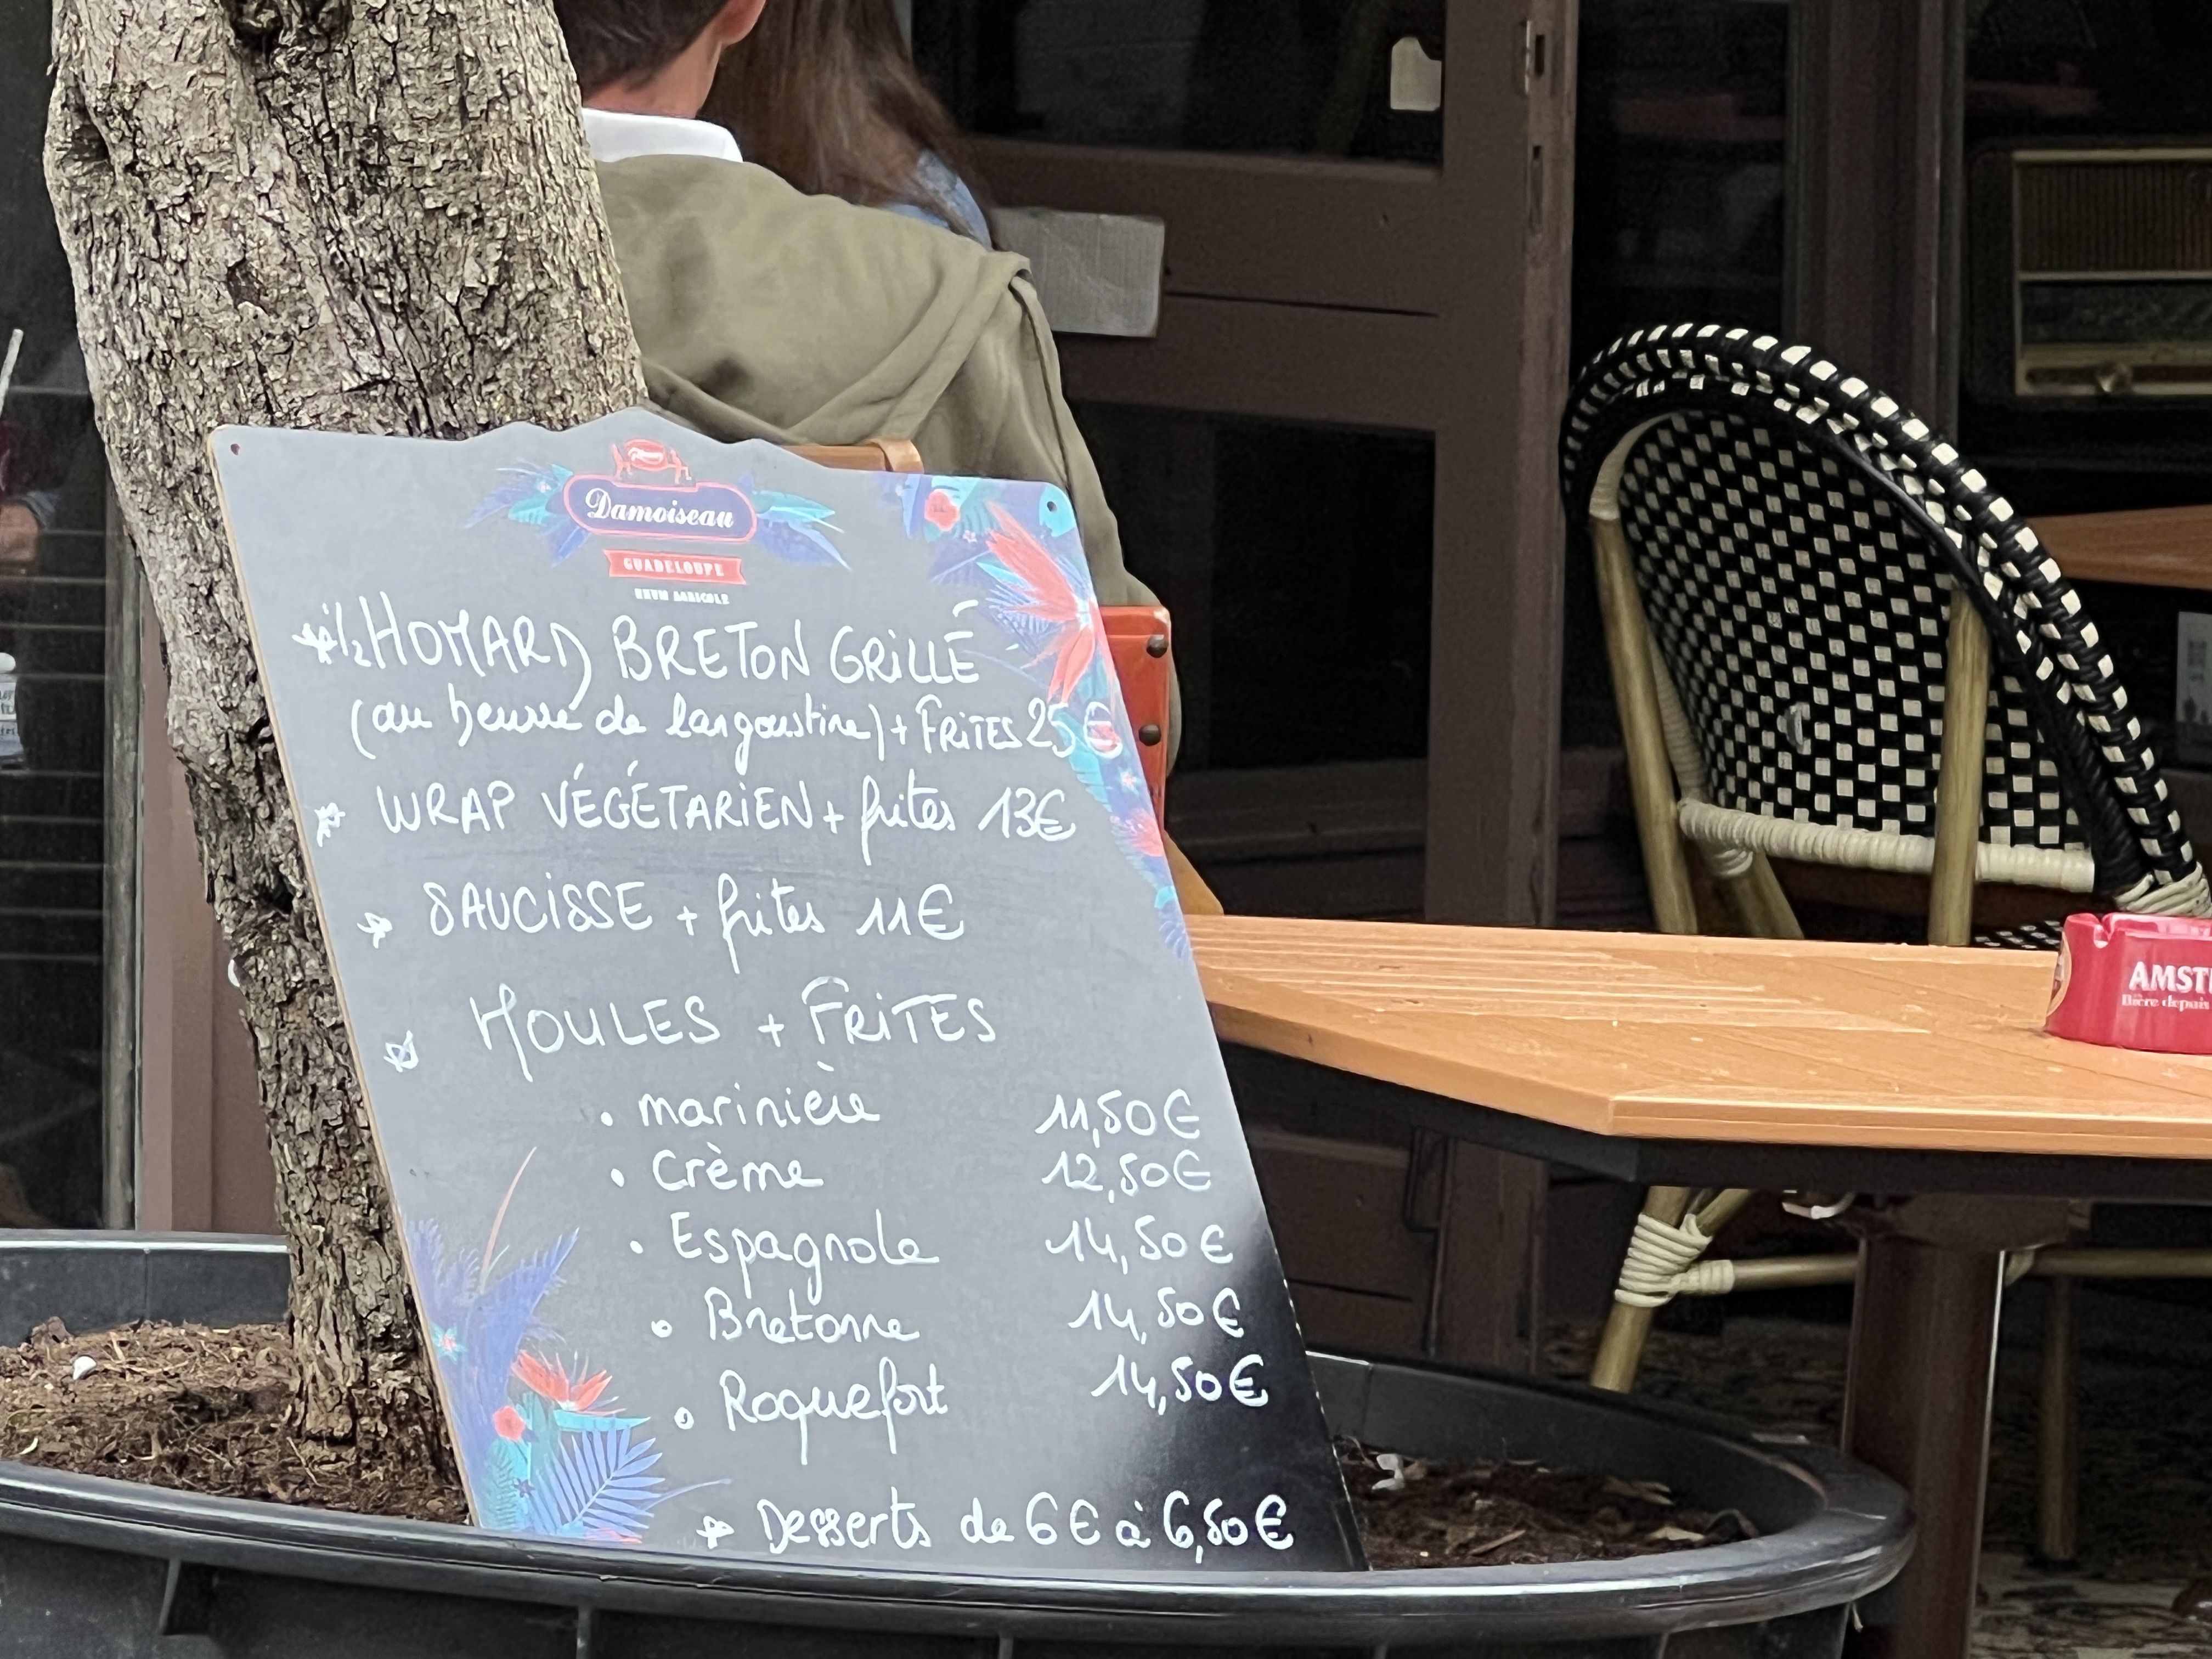 Damoiseau
GUADELOUPE
RHUM AGRICOLE
1/2 HOMARD BRETON GRILLÉ
(au beurre de langoustine) + FRITES 25€
WRAP VÉGÉTARIEN + frites 13€
SAUCISSE + frites 11€
MOULES + FRITES
• marinière 11,50€
• Crème 12,50€
• Espagnole 14,50€
• Bretonne 14,50€
• Roquefort 14,50€
Desserts de 6€ à 6,50€
AMST
Bière depuis